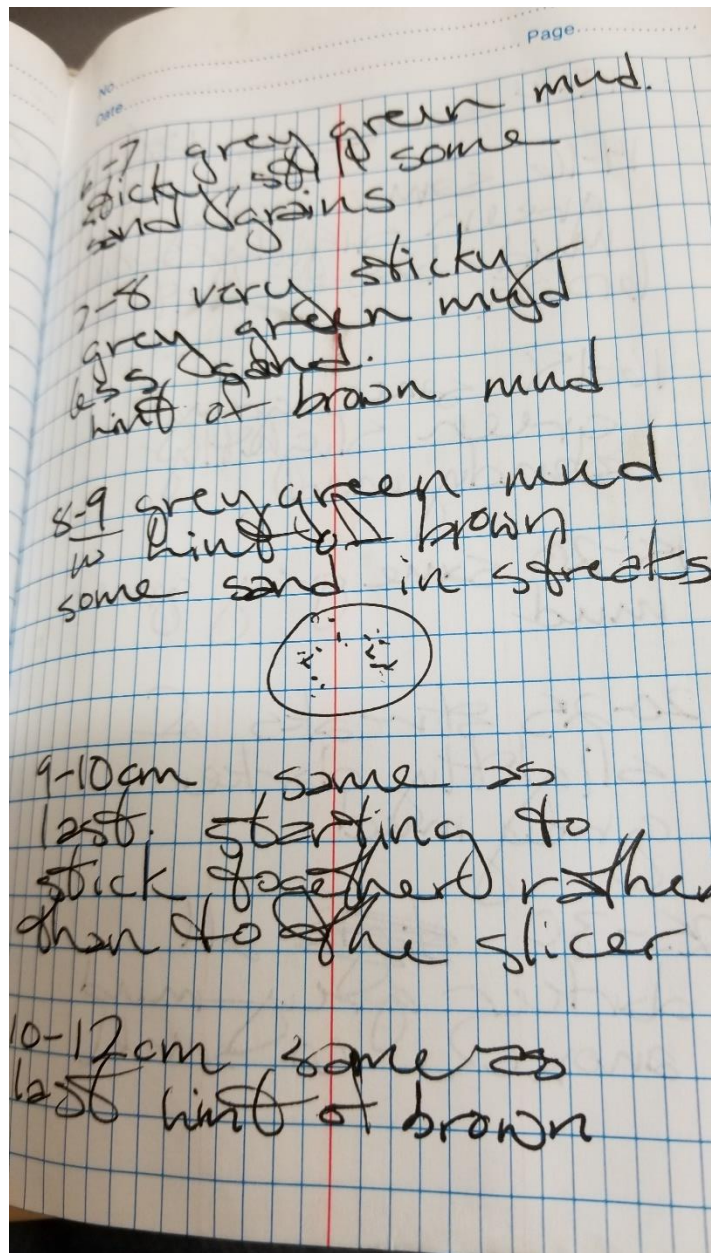 No.
Page
Date
6-7 grey green mud.
sticky, still some
sand grains
7-8 very sticky
grey green mud
less sand.
hint of brown mud
8-9 grey green mud
w hint of brown
some sand in streaks
9-10cm same as
last. starting to
stick together rather
than to the slicer
10-12cm same as
last hint of brown